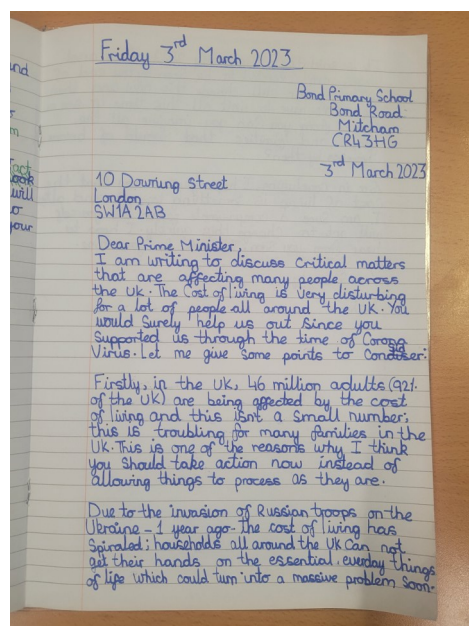 Friday 3rd March 2023
Bond Primary School
Bond Road
Mitcham
CR4 3HG
3rd March 2023
10 Downing Street
London
SW1A 2AB
Dear Prime Minister,
I am writing to discuss critical matters
that are affecting many people across
the UK. The Cost of living is very disturbing
for a lot of people all around the UK. You
would Surely help us out since you
Supported us through the time of Corona
Virus. Let me give Some points to Consider.
Firstly, in the UK, 46 million adults (92%
of the UK) are being affected by the cost
of living and this isn't a small number;
this is troubling for many families in the
UK. This is one of the reasons why I think
you should take action now instead of
allowing things to process as they are.
Due to the invasion of Russian troops on the
Ukraine - 1 year ago - the cost of living has
Spiraled; households all around the UK Can not
get their hands on the essential, everday things
of life which could turn into a massive problem soon.
nd
m
fact
ook
will
o
your